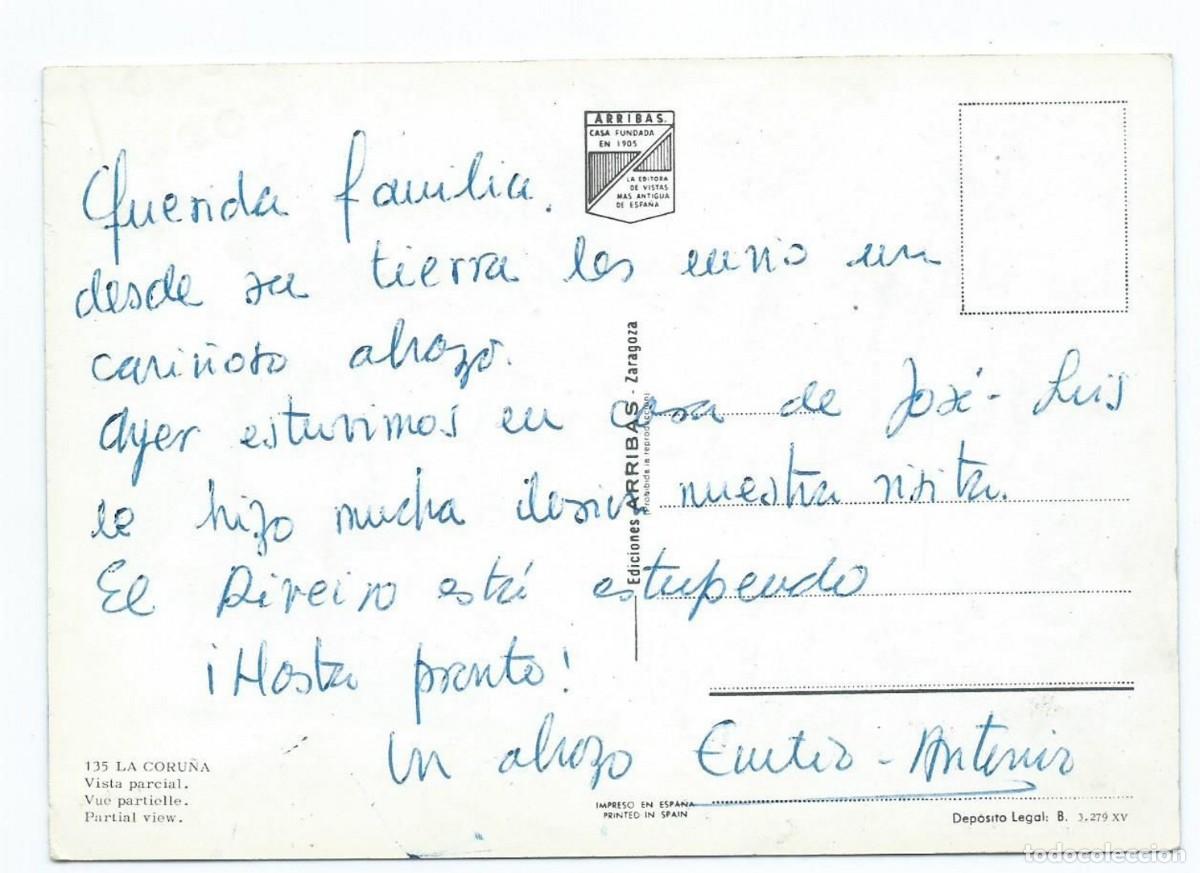 ARRIBAS.
CASA FUNDADA
EN 1905
LA EDITORA
DE VISTAS
MAS ANTIGUA
DE ESPAÑA
Querida familia.
desde su tierra les envio un
cariñoso abrazo.
Ayer estuvimos en casa de José-Luis
le hizo mucha ilusion nuestra visita.
El Riveiro está estupendo
¡Hasta pronto!
Un abrazo Antonio
Ediciones ARRIBAS - Zaragoza
(Prohibida la reproducción)
135 LA CORUÑA
Vista parcial.
Vue partielle.
Partial view.
IMPRESO EN ESPAÑA
PRINTED IN SPAIN
Depósito Legal: B. 3.279 XV
todocoleccion